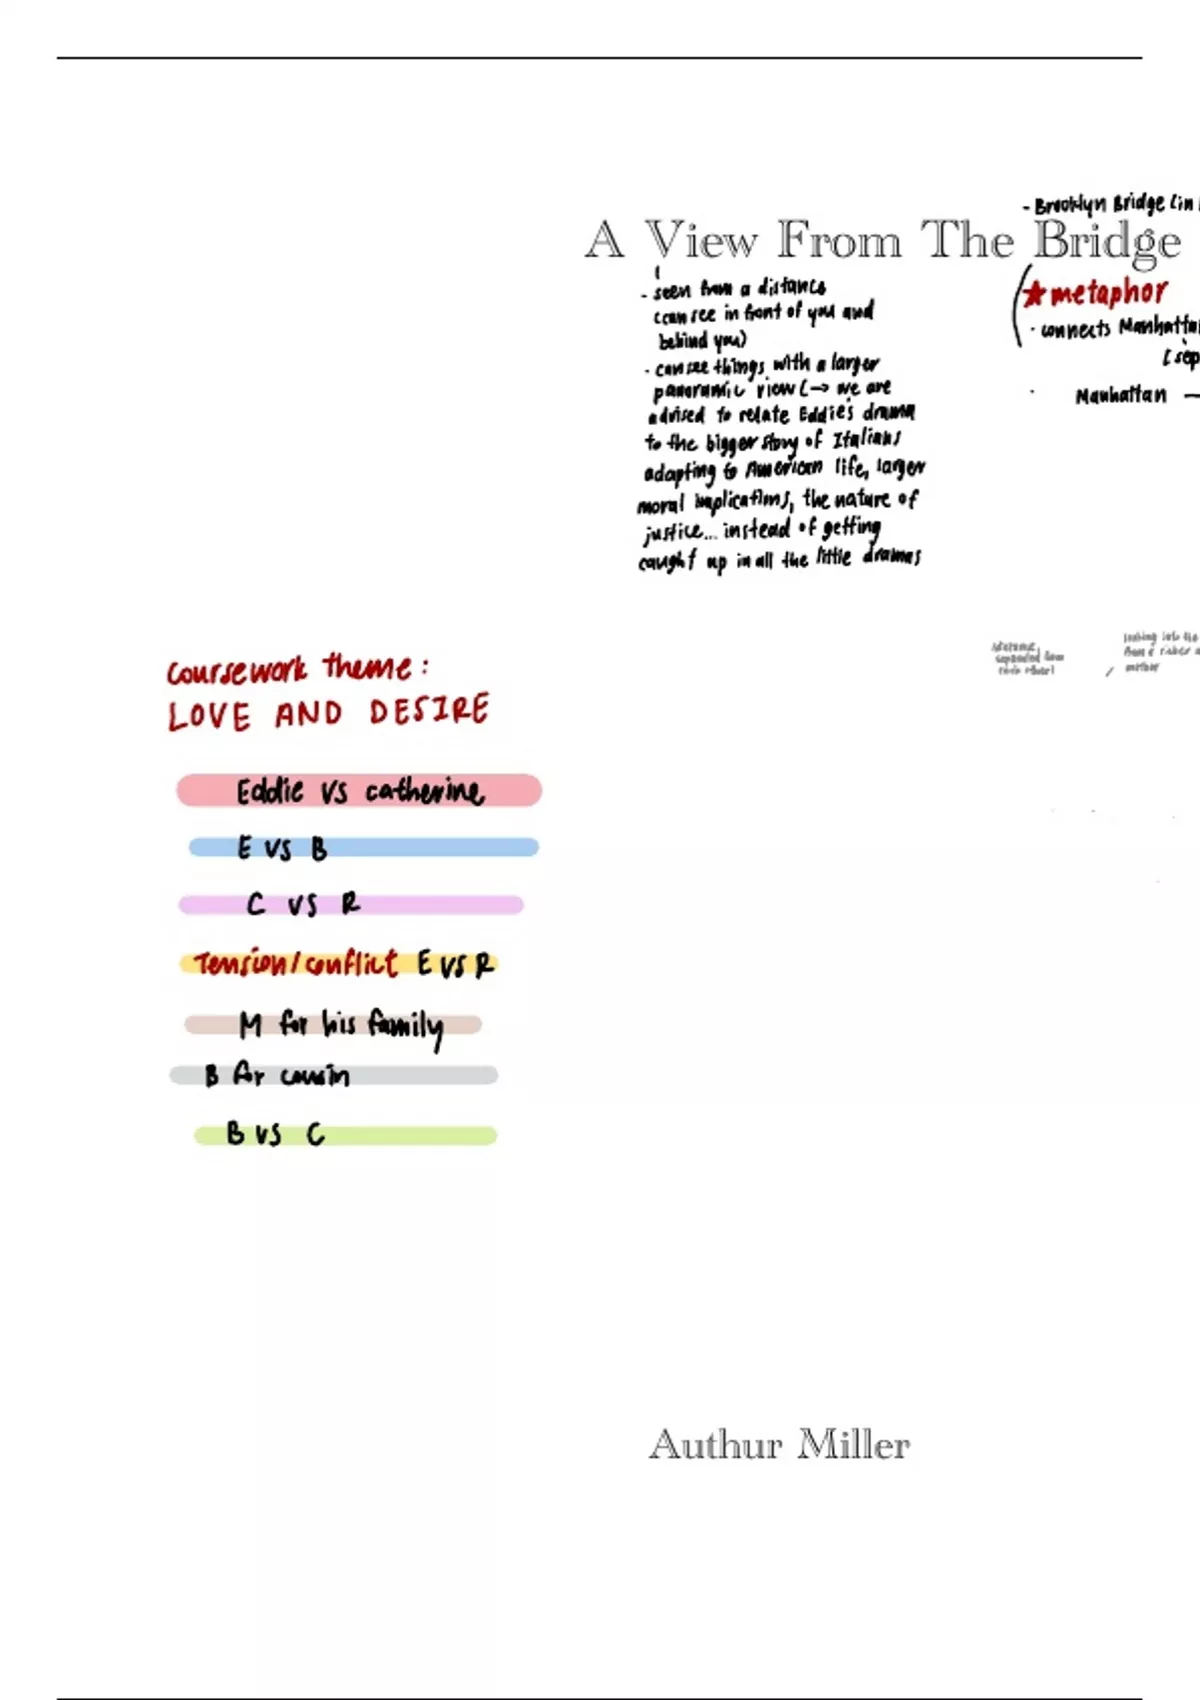 - Brooklyn Bridge (in
A View From The Bridge
- seen from a distance
(can see in front of you and
behind you)
- can see things with a larger
panoramic view (→ we are
advised to relate Eddie's drama
to the bigger story of Italians
adapting to American life, larger
moral implications, the nature of
justice... instead of getting
caught up in all the little dramas
★ metaphor
· connects Manhattan
(sep
· Manhattan —
looking into the
separated from
coursework theme:
LOVE AND DESIRE
Eddie vs catherine
E vs B
C vs R
Tension/conflict E vs R
M for his family
B for cousin
B vs C
Authur Miller